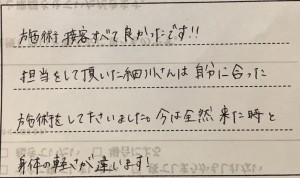 施術、接客すべて良かったです!!
担当をして頂いた細川さんは自分に合った
施術をして下さいました。今は全然来た時と
身体の軽さが違います!